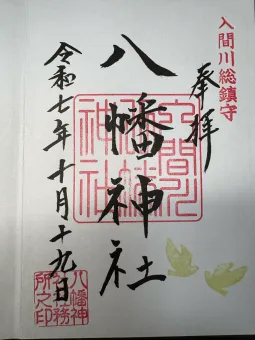 入間川総鎮守
奉拝
八幡神社
令和七年十月十九日
八幡神
社務
所之印